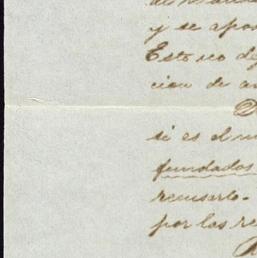 y se apo
Esto no de
cion de a
si es el m
fundados
recusarlo.
por las re